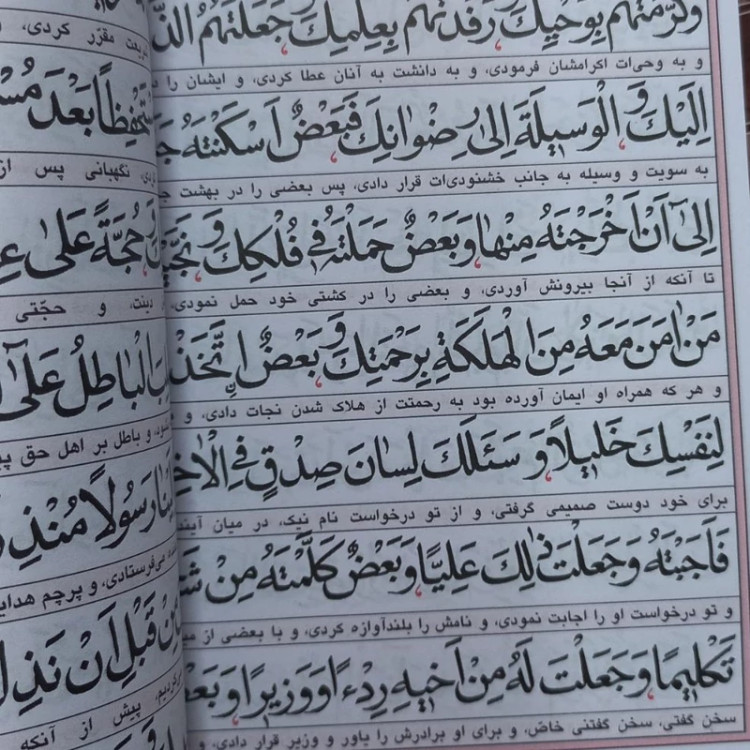 وَکَرَّمْتَهُمْ بِوَحْیِکَ وَ رَفَدْتَهُمْ بِعِلْمِکَ وَ جَعَلْتَهُمُ
و به وحی‌ات اکرامشان فرمودی، و به دانشت به آنان عطا کردی، و ایشان را
اِلَیْکَ وَ الْوَسیلَةَ اِلی رِضْوانِکَ فَبَعْضٌ اَسْکَنْتَهُ
به سویت و وسیله به جانب خشنودی‌ات قرار دادی، پس بعضی را در بهشت
اِلی آنْ اَخْرَجْتَهُ مِنْها وَ بَعْضٌ حَمَلْتَهُ فی فُلْکِکَ وَ
تا آنکه از آنجا بیرونش آوردی، و بعضی را در کشتی خود حمل نمودی،
مَنْ امَنَ مَعَهُ مِنَ الْهَلَکَةِ بِرَحْمَتِکَ وَ بَعْضٌ
و هر که همراه او ایمان آورده بود به رحمتت از هلاک شدن نجات دادی، و
لِنَفْسِکَ خَلیلاً وَ سَئَلَکَ لِسانَ صِدْقٍ فِی
برای خود دوست صمیمی گرفتی، و از تو درخواست نام نیک، در میان
فَاَجَبْتَهُ وَ جَعَلْتَ ذلِکَ عَلِیّاً وَ بَعْضٌ کَلَّمْتَهُ مِنْ
و تو درخواست او را اجابت نمودی، و نامش را بلندآوازه کردی، و با بعضی از
تَکْلیماً وَ جَعَلْتَ لَهُ مِنْ اَخیهِ رِدْءاً وَ وَزیراً وَ
سخن گفتی، سخن گفتنی خاصّ، و برای او برادرش را یاور و وزیر قرار دادی، و
شریعت مقرّر کردی،
بَعْدَ
نگهبانی پس از
حُجَّةً عَلی
و حجّتی
الْباطِلُ عَلی
و باطل بر اهل حق
رَسُولاً
می‌فرستادی، و پرچم
قَبْلِ اَنْ
پیش از آنکه